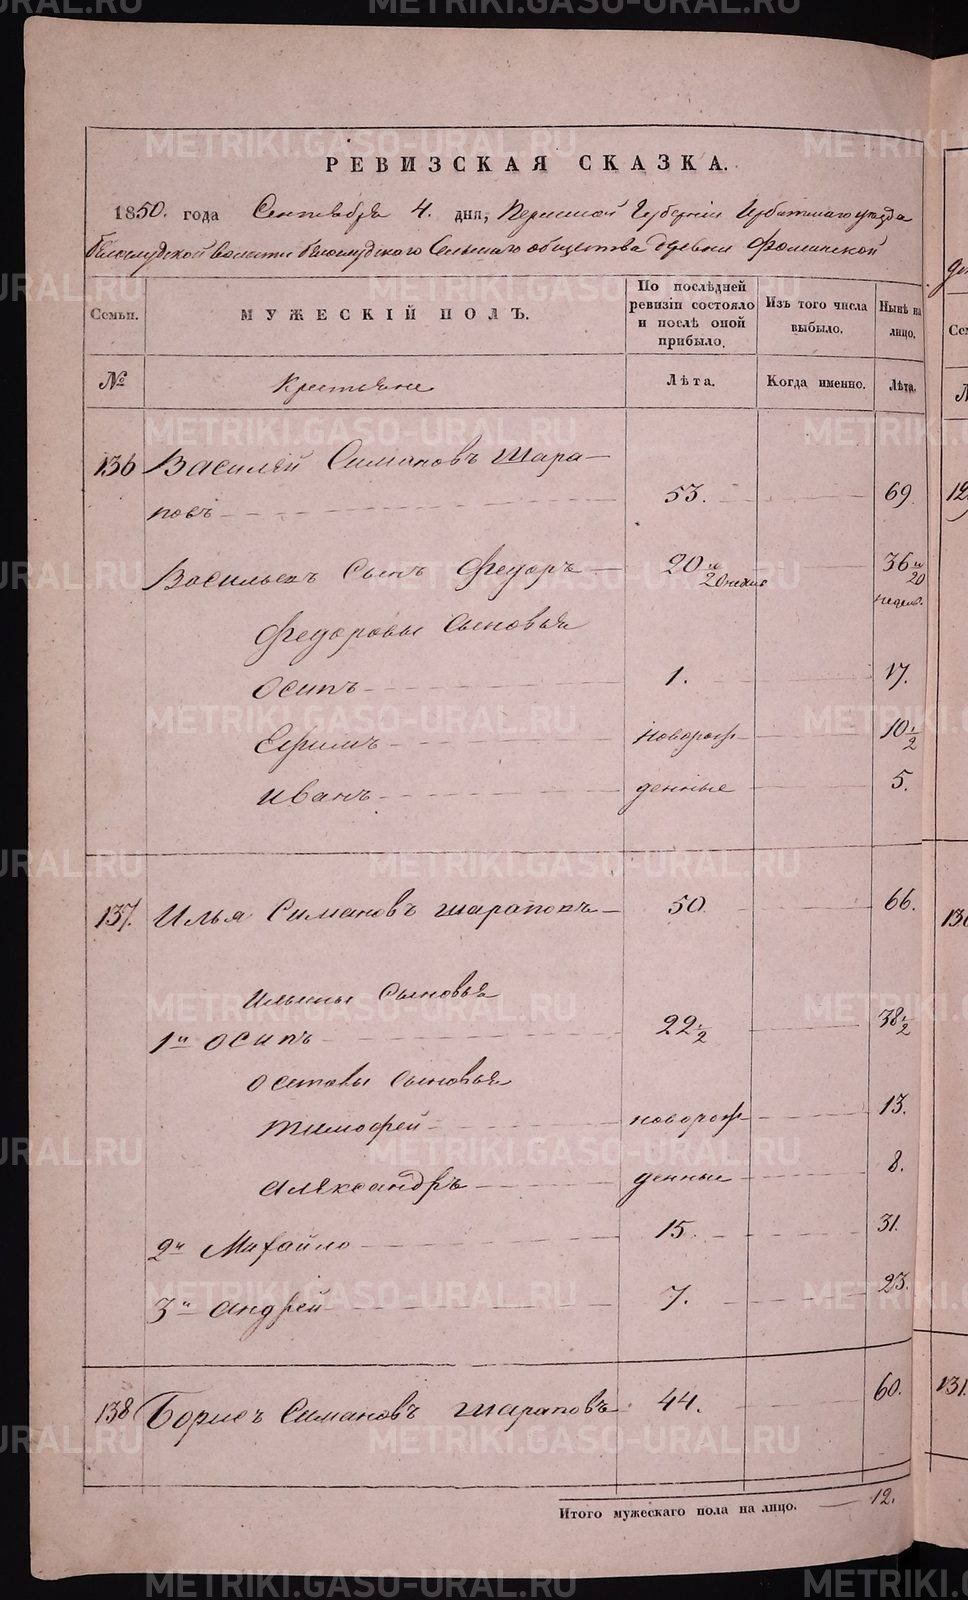 РЕВИЗСКАЯ СКАЗКА.
1850. года Сентября 4. дня, Пермской Губернии Ирбитскаго уезда
Белослудской волости Белослудского Сельскаго общества деревни Фоминской
Семьи.
МУЖЕСКІЙ ПОЛЪ.
По послѣдней
ревизіи состояло
и послѣ оной
прибыло.
Изъ того числа
выбыло.
Нынѣ на
лицо.
№
Крестьяне
Лѣта.
Когда именно.
Лѣта.
136 Василей Симановъ Шара-
повъ 53. 69
Васильевъ Сынъ Федоръ 20 и 20 недель 36 и 20 недель.
Федоровы Сыновья
Осипъ 1. 17.
Ефимъ новорож 10 1/2
Иванъ денные 5.
137. Илья Симановъ Шараповъ 50. 66.
Ильины Сыновья
1й Осипъ 22 1/2 38 1/2
Осиповы Сыновья
Тимофей новорож 13.
Александръ денные 8.
2й Михайло 15. 31.
3й Андрей 7. 23.
138 Борисъ Симановъ Шараповъ 44. 60.
Итого мужескаго пола на лицо. 12.
METRIKI.GASO-URAL.RU